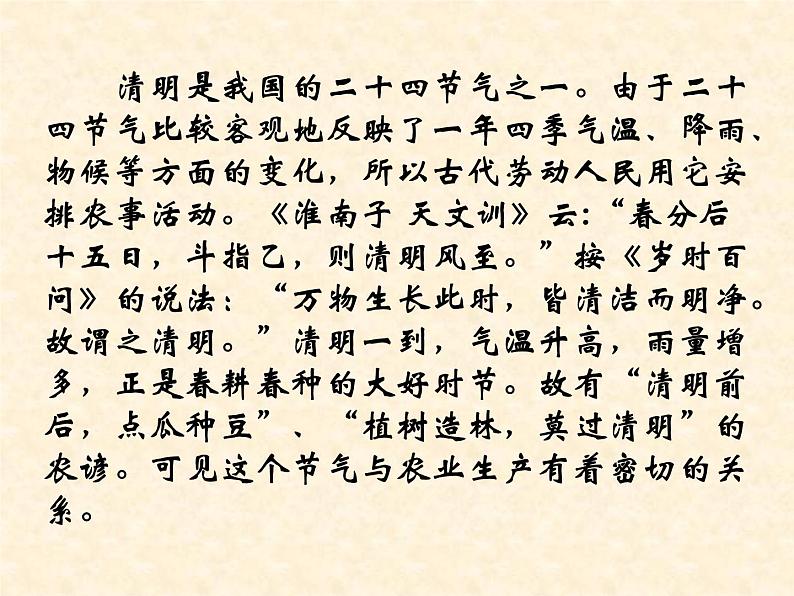 清明是我国的二十四节气之一。由于二十
四节气比较客观地反映了一年四季气温、降雨、
物候等方面的变化，所以古代劳动人民用它安
排农事活动。《淮南子 天文训》云：“春分后
十五日，斗指乙，则清明风至。”按《岁时百
问》的说法：“万物生长此时，皆清洁而明净。
故谓之清明。”清明一到，气温升高，雨量增
多，正是春耕春种的大好时节。故有“清明前
后，点瓜种豆”、“植树造林，莫过清明”的
农谚。可见这个节气与农业生产有着密切的关
系。